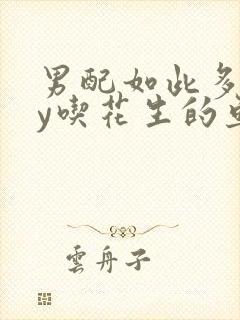 男配如此多
y喫花生的
雲舟子